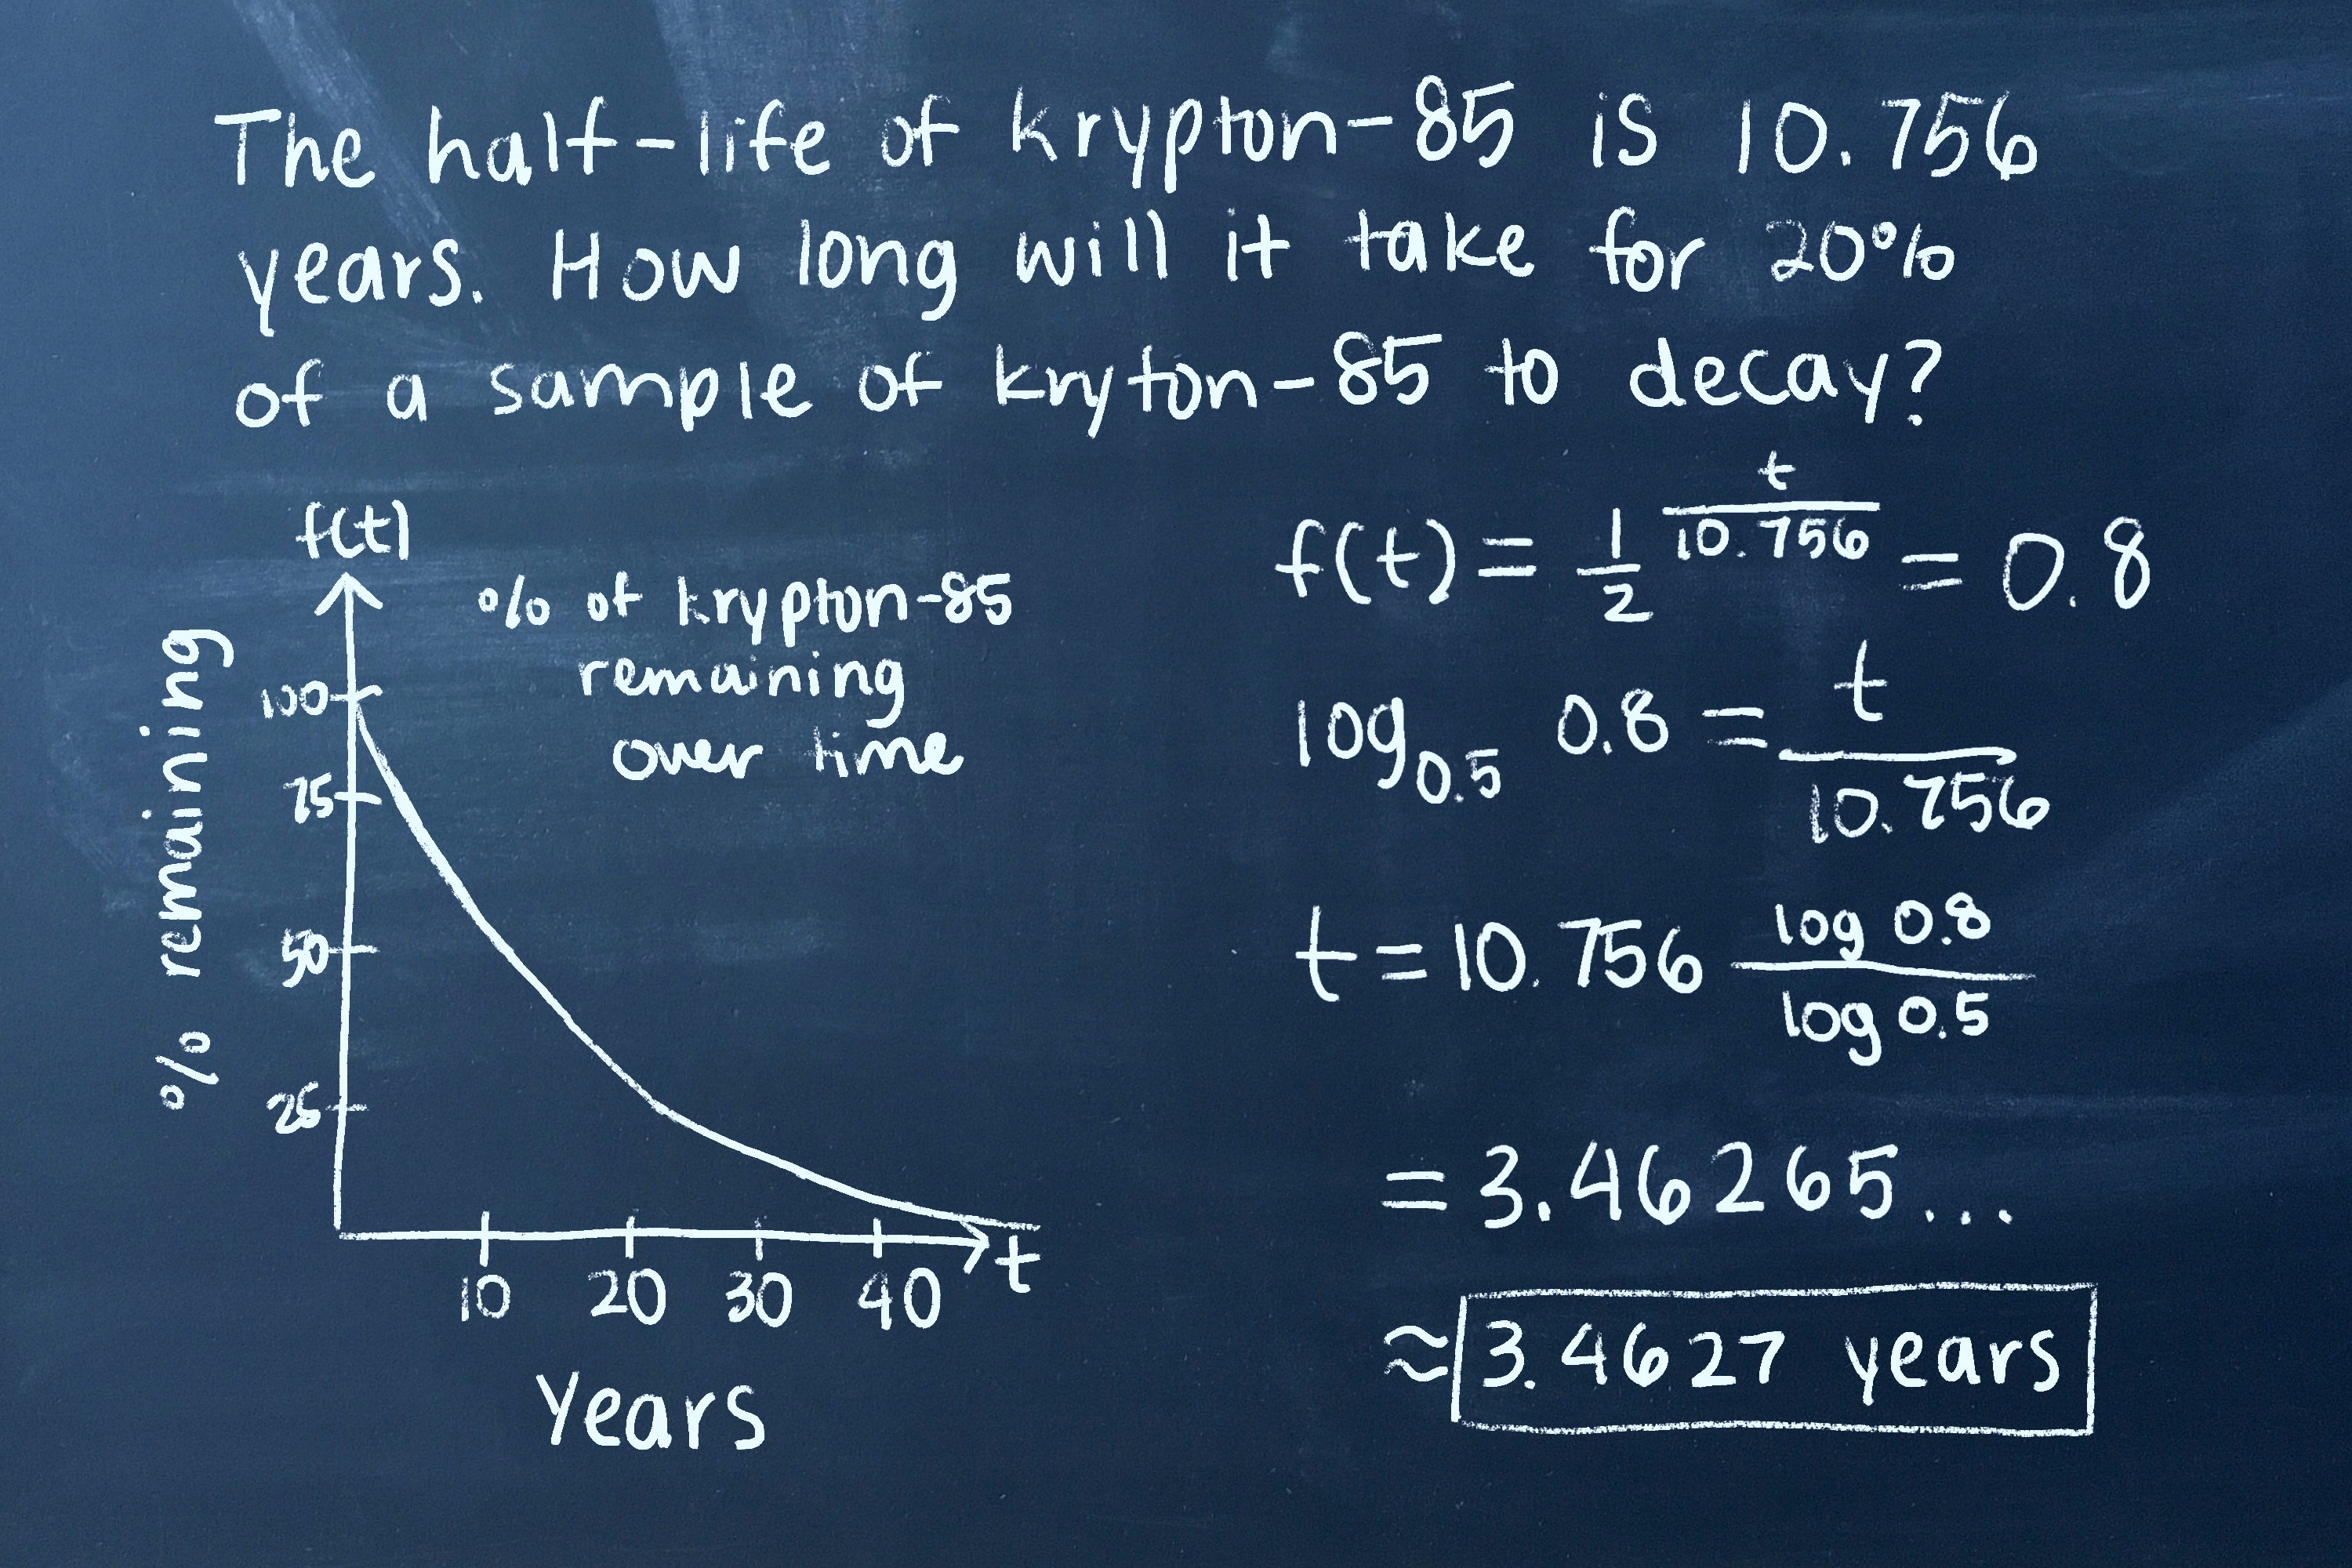 The half-life of krypton-85 is 10.756
years. How long will it take for 20%
of a sample of kryton-85 to decay?
f(t)
% of krypton-85
remaining
over time
% remaining
100
75
50
25
10 20 30 40 t
Years
f(t) = 1/2 ^ t/10.756 = 0.8
log_0.5 0.8 = t/10.756
t = 10.756 log 0.8/log 0.5
= 3.46265...
≈ 3.4627 years